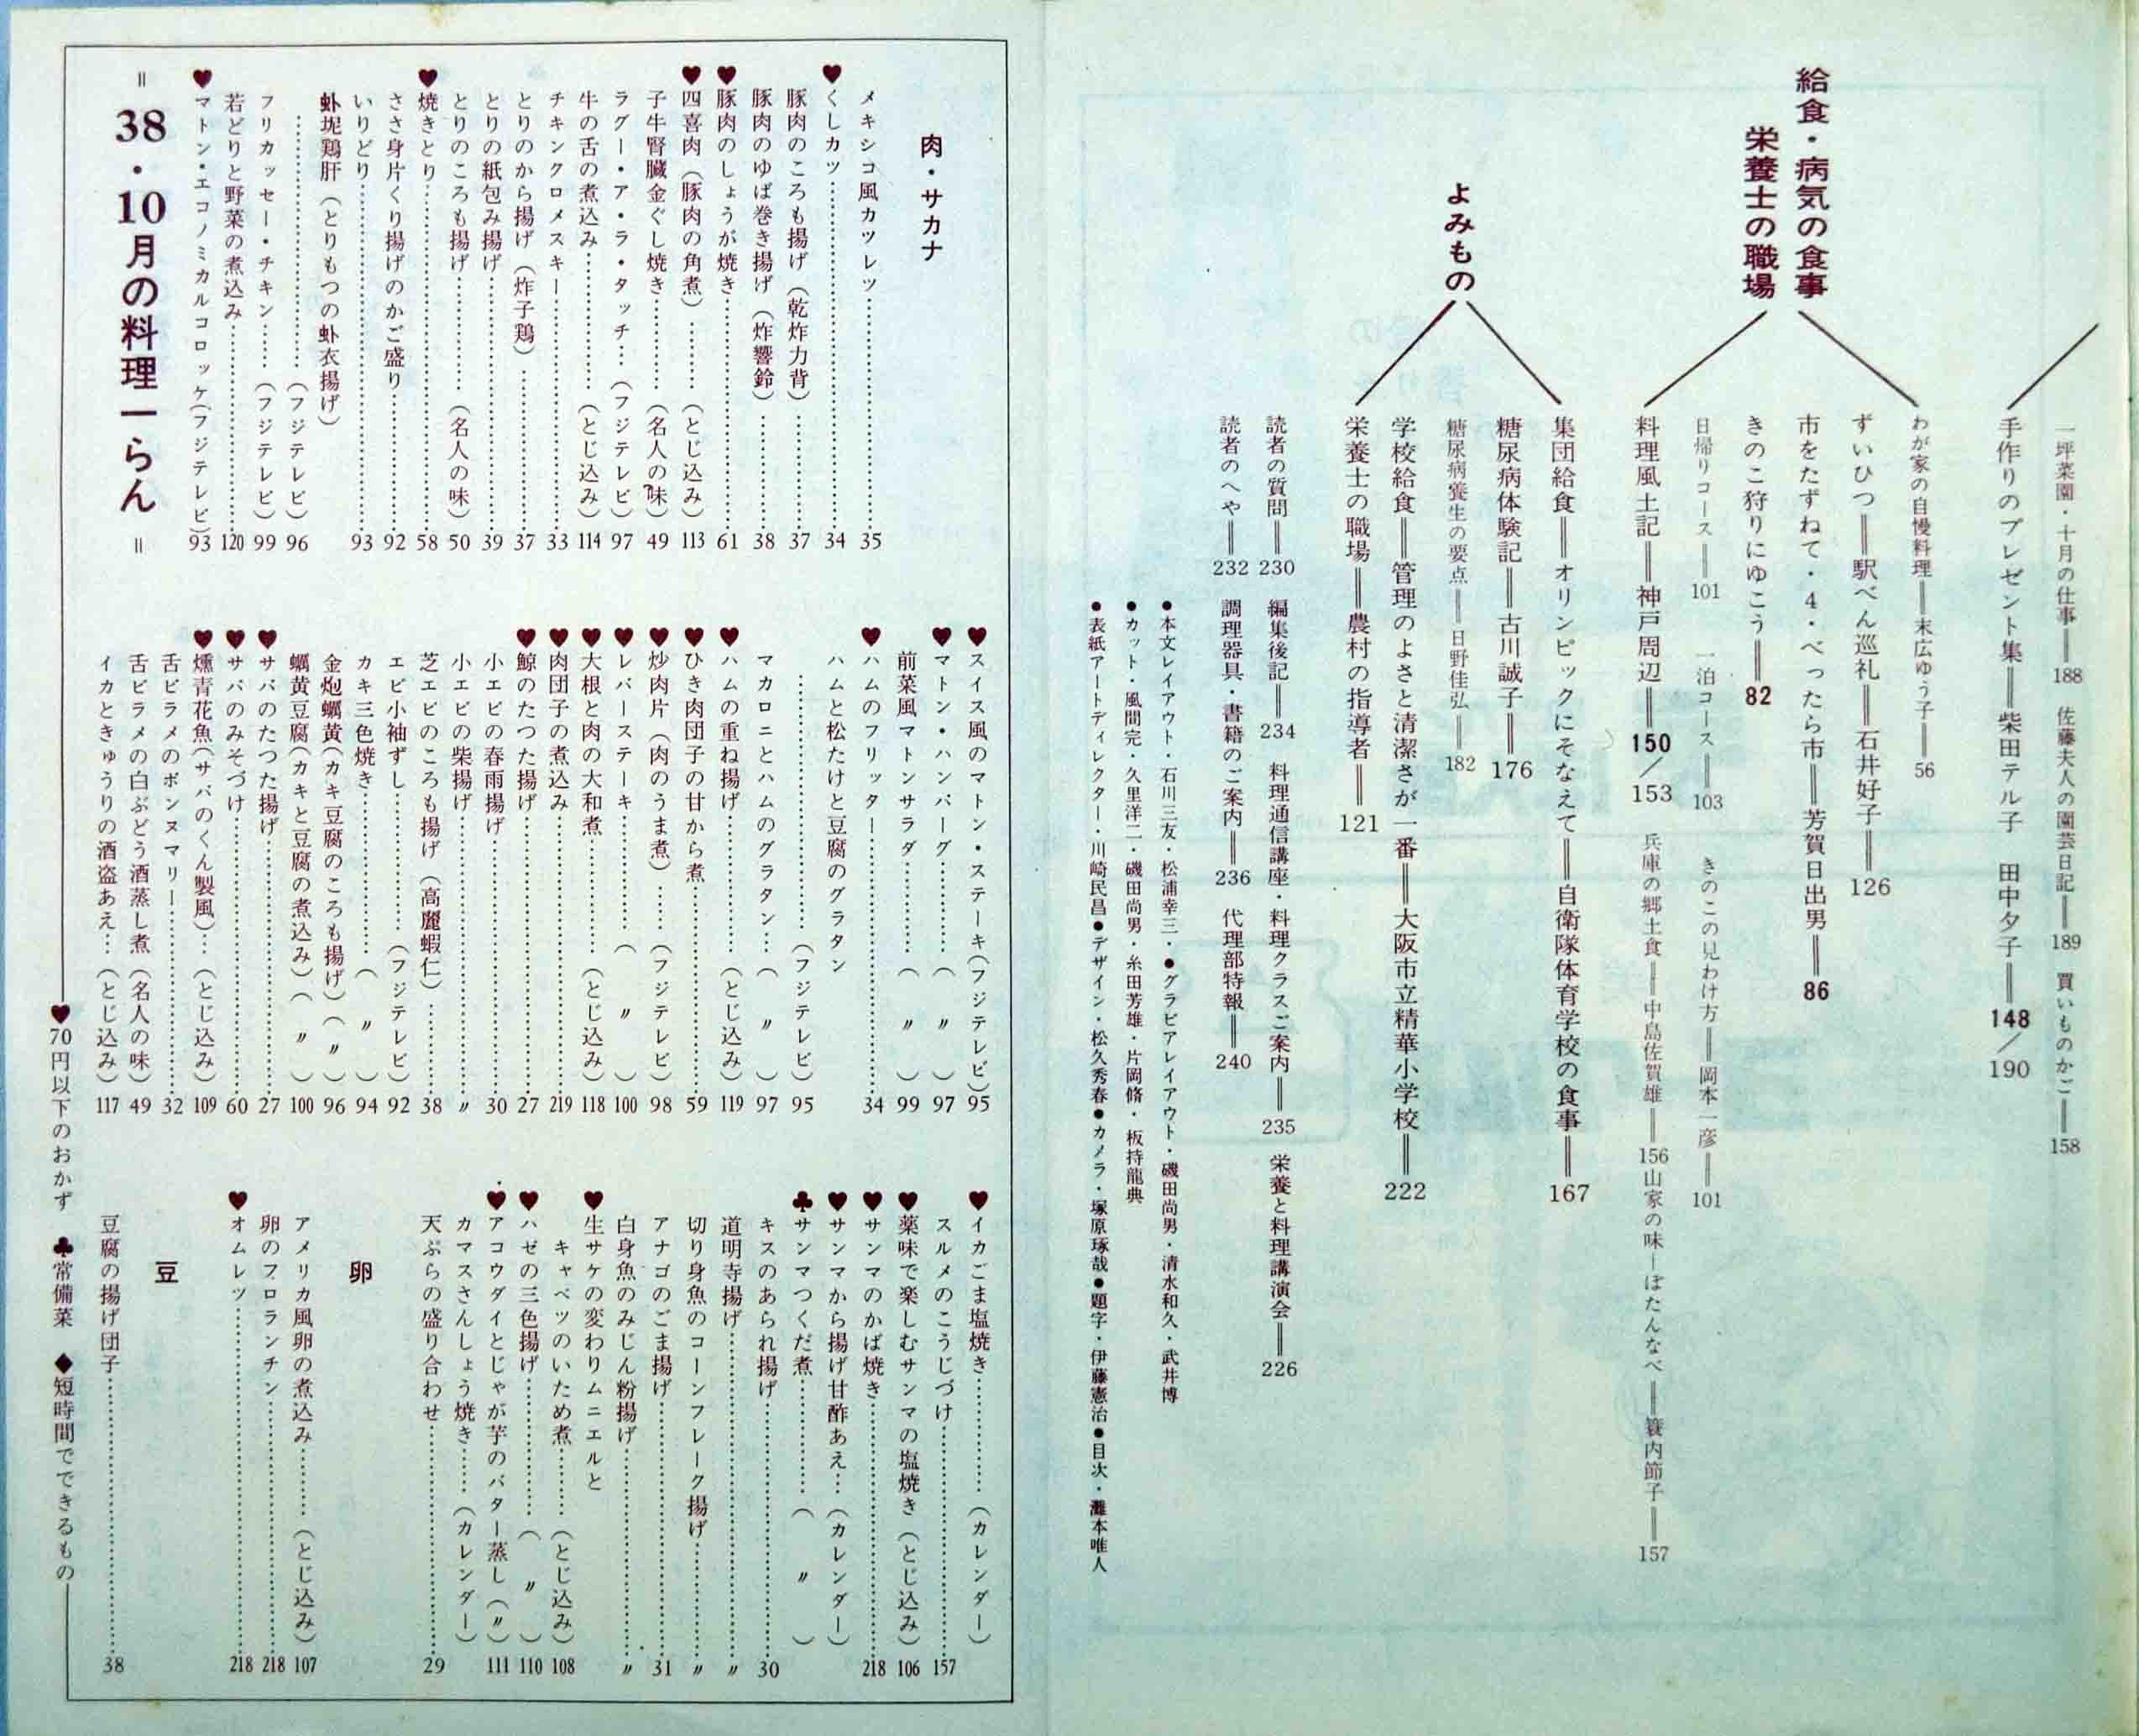 一坪菜園・十月の仕事═188 佐藤夫人の園芸日記═189 買いものかご═158
手作りのプレゼント集═柴田テル子 田中夕子═148／190
給食・病気の食事
栄養士の職場
わが家の自慢料理═末広ゆう子═56
ずいひつ═駅べん巡礼═石井好子═126
市をたずねて・4・べったら市═芳賀日出男═86
きのこ狩りにゆこう═82
日帰りコース═101 一泊コース═103 きのこの見わけ方═岡本一彦═101
料理風土記═神戸周辺═150／153 兵庫の郷土食═中島佐賀雄═156 山家の味―ぼたんなべ═簑内節子═157
よみもの
集団給食═オリンピックにそなえて═自衛隊体育学校の食事═167
糖尿病体験記═古川誠子═176
糖尿病養生の要点═日野佳弘═182
学校給食═管理のよさと清潔さが一番═大阪市立精華小学校═222
栄養士の職場═農村の指導者═121
読者の質問═230 編集後記═234 料理通信講座・料理クラスご案内═235 栄養と料理講演会═226
読者のへや═232 調理器具・書籍のご案内═236 代理部特報═240
●本文レイアウト・石川三友・松浦幸三・●グラビアレイアウト・磯田尚男・清水和久・武井博
●カット・風間完・久里洋二・磯田尚男・糸田芳雄・片岡脩・板持龍典
●表紙アートディレクター・川崎民昌●デザイン・松久秀春●カメラ・塚原琢哉●題字・伊藤憲治●目次・灘本唯人
肉・サカナ
メキシコ風カツレツ……35
♥くしカツ……34
豚肉のころも揚げ（乾炸力背）……37
豚肉のゆば巻き揚げ（炸響鈴）……38
♥豚肉のしょうが焼き……61
♥四喜肉（豚肉の角煮）……（とじ込み）113
子牛腎臓金ぐし焼き……（名人の味）49
ラグー・ア・ラ・タッチ…（フジテレビ）97
牛の舌の煮込み……（とじ込み）114
チキンクロメスキー……33
とりのから揚げ（炸子鶏）……37
とりの紙包み揚げ……39
とりのころも揚げ……（名人の味）50
♥焼きとり……58
ささ身片くり揚げのかご盛り……92
いりどり……93
蚫坭鶏肝（とりもつの蚫衣揚げ）
……（フジテレビ）96
フリカッセー・チキン……（フジテレビ）99
若どりと野菜の煮込み……120
♥マトン・エコノミカルコロッケ（フジテレビ）93
＝38・10月の料理一らん＝
♥スイス風のマトン・ステーキ（フジテレビ）95
♥マトン・ハンバーグ……（〃）97
前菜風マトンサラダ……（〃）99
♥ハムのフリッター……34
ハムと松たけと豆腐のグラタン
……（フジテレビ）95
マカロニとハムのグラタン…（〃）97
♥ハムの重ね揚げ……（とじ込み）119
♥ひき肉団子の甘から煮……59
♥炒肉片（肉のうま煮）……（フジテレビ）98
♥レバーステーキ……（〃）100
♥大根と肉の大和煮……（とじ込み）118
♥肉団子の煮込み……219
♥鯨のたつた揚げ……27
小エビの春雨揚げ……30
小エビの柴揚げ……〃
芝エビのころも揚げ（高麗蝦仁）……38
エビ小袖ずし……（フジテレビ）92
カキ三色焼き……（〃）94
金炮蠣黄（カキ豆腐のころも揚げ）（〃）96
蠣黄豆腐（カキと豆腐の煮込み）（〃）100
♥サバのたつた揚げ……27
♥サバのみそづけ……60
♥燻青花魚（サバのくん製風）…（とじ込み）109
舌ビラメのボンヌマリー……32
舌ビラメの白ぶどう酒蒸し煮（名人の味）49
イカときゅうりの酒盗あえ…（とじ込み）117
♥イカごま塩焼き……（カレンダー）
スルメのこうじづけ……157
♥薬味で楽しむサンマの塩焼き（とじ込み）106
♥サンマのかば焼き……218
♥サンマから揚げ甘酢あえ…（カレンダー）
♣サンマつくだ煮……（〃）
キスのあられ揚げ……30
道明寺揚げ……〃
切り身魚のコーンフレーク揚げ……〃
アナゴのごま揚げ……31
白身魚のみじん粉揚げ……〃
♥生サケの変わりムニエルと
キャベツのいため煮……（とじ込み）108
♥ハゼの三色揚げ……（〃）110
♥アコウダイとじゃが芋のバター蒸し（〃）111
カマスさんしょう焼き……（カレンダー）
天ぷらの盛り合わせ……29
卵
アメリカ風卵の煮込み……（とじ込み）107
卵のフロランチン……218
♥オムレツ……218
豆
豆腐の揚げ団子……38
♥70円以下のおかず ♣常備菜 ◆短時間でできるもの